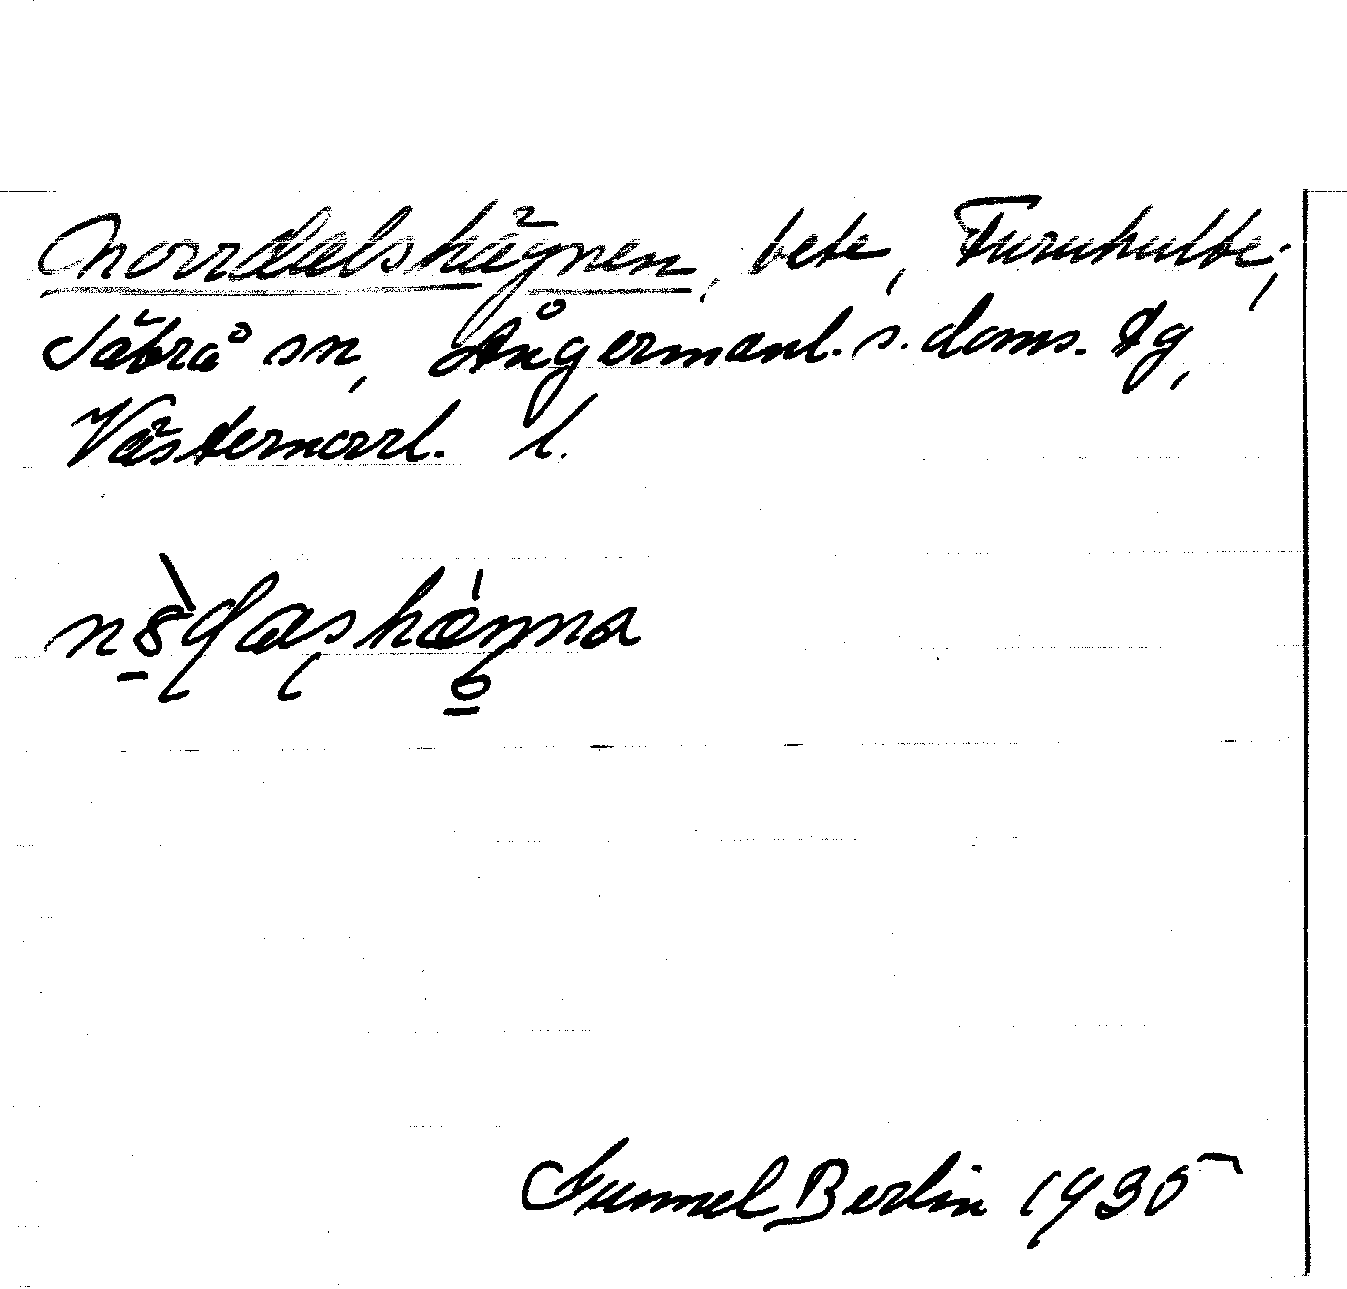 Norrdalshägnen, bete, Furuhult,
Säbrå sn, Ångermanl. s. doms. tg,
Västernorrl. l.
Gunnel Berlin 1935